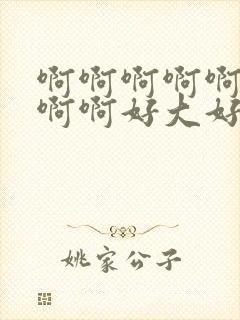 啊啊啊啊啊
啊啊好大好
姚家公子